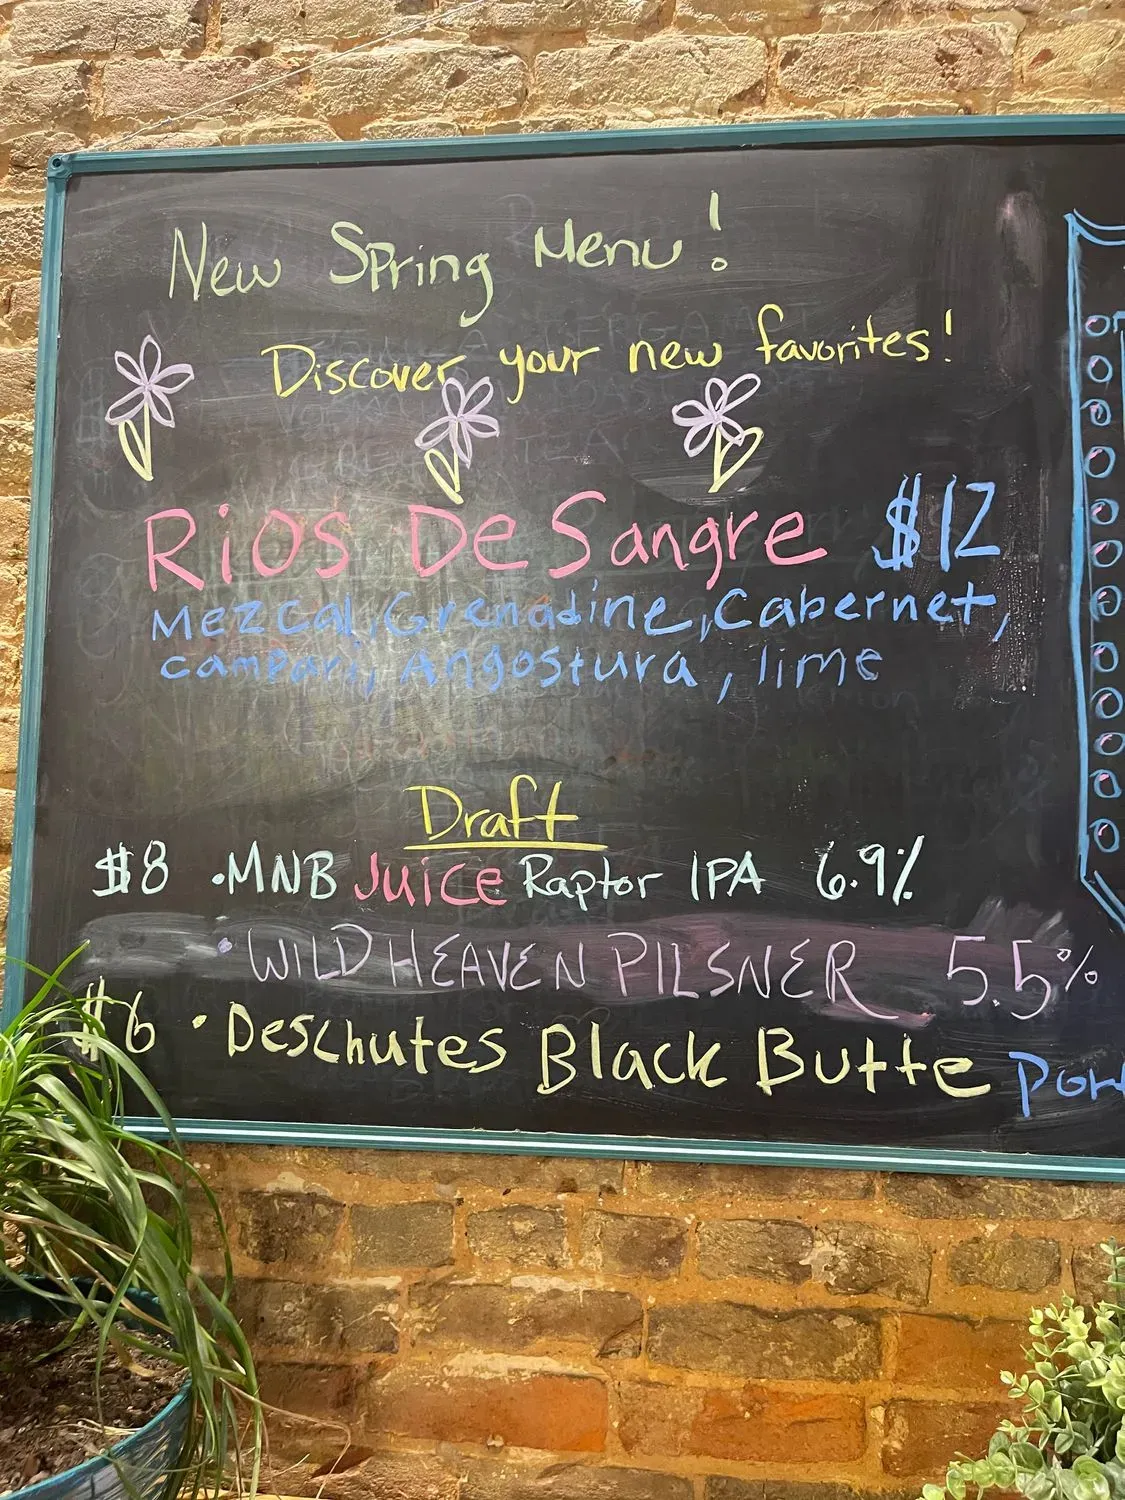 New Spring Menu!
Discover your new favorites!
Rios De Sangre $12
Mezcal, Grenadine, Cabernet,
campari, Angostura, lime
Draft
$8 • MNB Juice Raptor IPA 6.9%
• WILD HEAVEN PILSNER 5.5%
$6 • Deschutes Black Butte Por